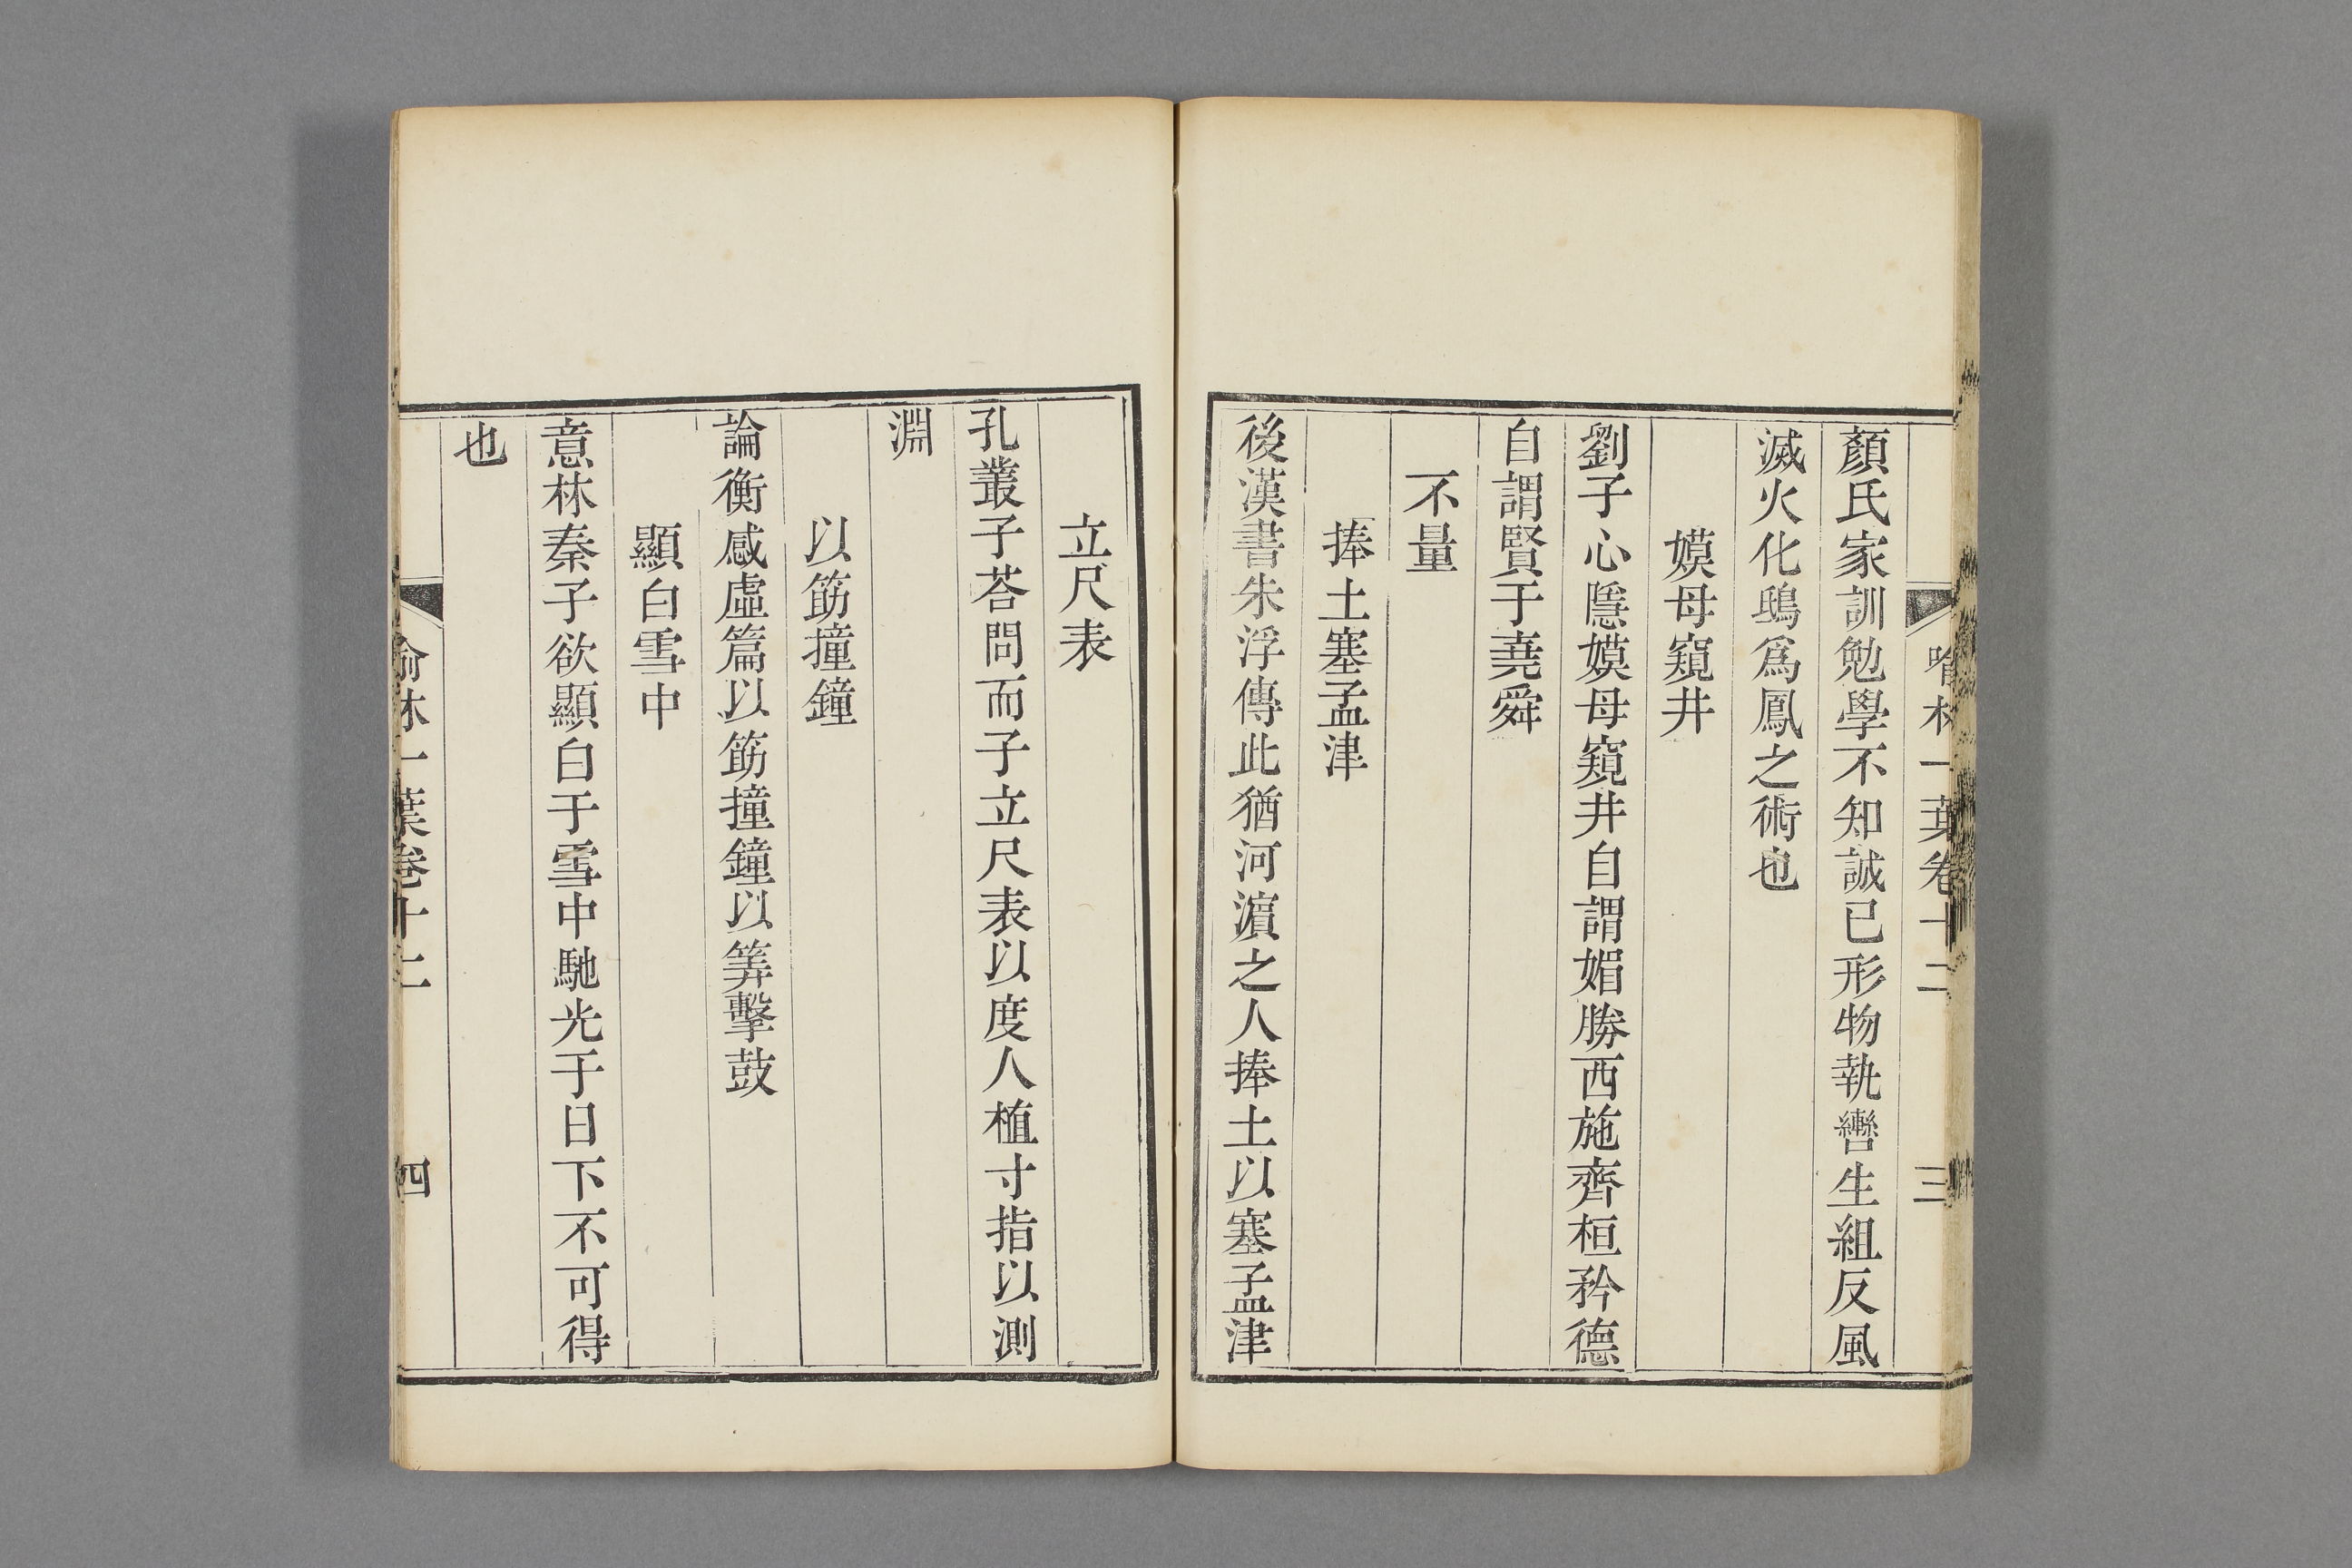 喻林一葉卷十二 三
顏氏家訓勉學不知誠己形物執轡生組反風
滅火化鴟爲鳳之術也
嫫母窺井
劉子心隱嫫母窺井自謂媚勝西施齊桓矜德
自謂賢于堯舜
不量
捧土塞孟津
後漢書朱浮傳此猶河濵之人捧土以塞孟津
立尺表
孔叢子荅問而子立尺表以度人植寸指以測
淵
以筯撞鐘
論衡感虛篇以筯撞鐘以筭擊鼓
顯白雪中
意林秦子欲顯白于雪中馳光于日下不可得
也
喻林一葉卷十二 四